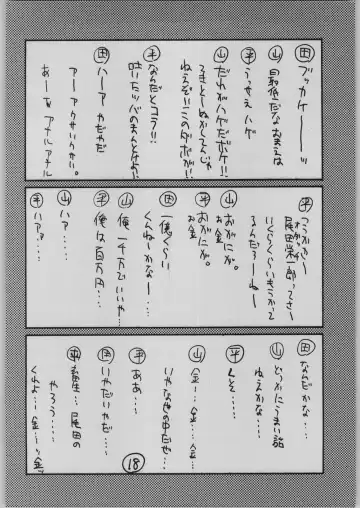 田 ブッカケーーッ
山 最低だなおまえは
平 うっせえハゲ
山 だれがハゲだボケ!!
てきとーぬかしてんじゃ
ねえぞ!!このダボが!!
平 なんだとコラ!!
吐いたツバのまんとけよ!!
田 ハーアやだやだ
アーアウサいウサい
あーあアナルアナル
平 つうかさー
尾田栄一郎ってさー
いくらくらいもうかって
るんだろーねー
山 おがにが。
お金
平 おがにが。
お金
田 一億くらい
くんねーかなー…
山 俺一千万でいいや…
平 俺は百万円…
山 ハァ……
平 ハァ……
田 なんだかな…
山 どっかにうまい話
ねえかな…
平 くそ……
山 金…金…金…
平 ああ…
いやなせの中だぜ…
田 いやだいやだ…
平 畜生…尾田の
やろう……
くれよ…金…っ金
18